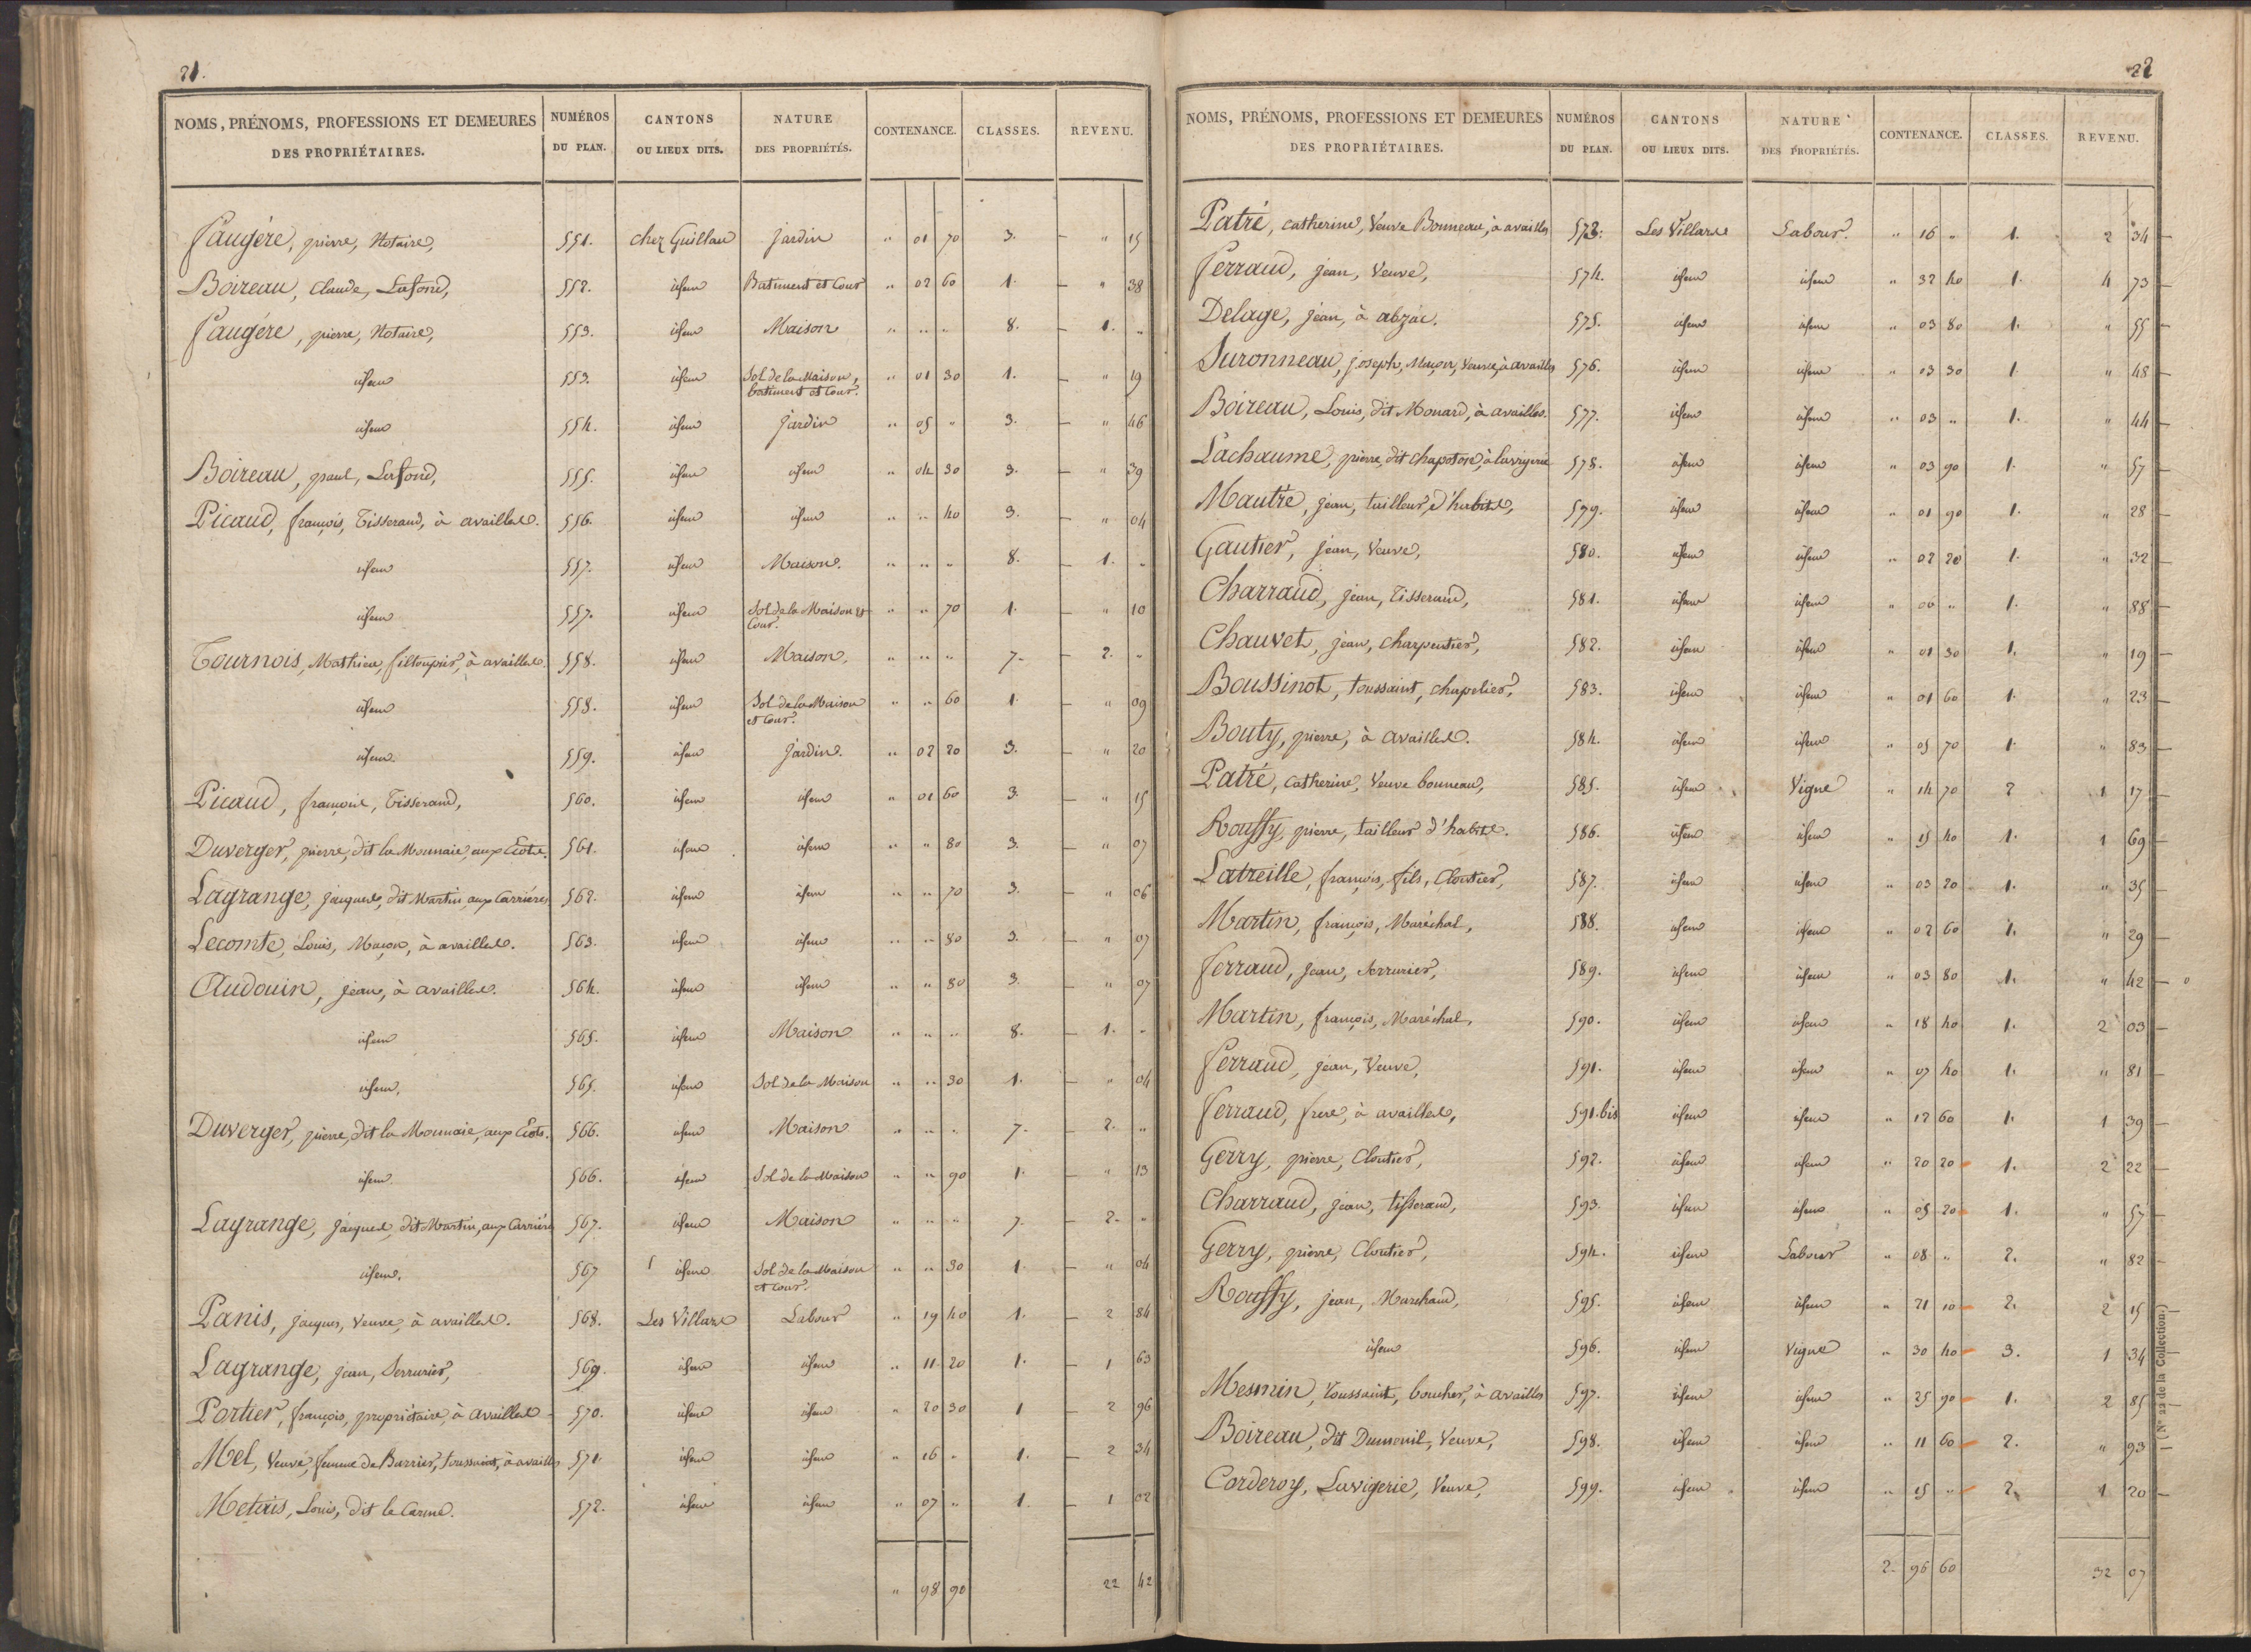 21.
NOMS, PRÉNOMS, PROFESSIONS ET DEMEURES DES PROPRIÉTAIRES. NUMÉROS DU PLAN. CANTONS OU LIEUX DITS. NATURE DES PROPRIÉTÉS. CONTENANCE. CLASSES. REVENU.
Faugère, pierre, Notaire, 551. chez Guillau jardin " 01 70 3. " 15
Boireau, Claude, Lafond, 552. idem Batiment et Cour " 02 60 1. " 38
Faugère, pierre, Notaire, 553. idem Maison " " " 8. 1. "
idem 553. idem Sol de la Maison, batiment et Cour. " 01 30 1. " 19
idem 554. idem jardin " 05 " 3. " 46
Boireau, paul, Lafond, 555. idem idem " 04 30 3. " 39
Picaud, françois, Tisserand, à availles. 556. idem idem " " 40 3. " 04
idem 557. idem Maison. " " " 8. 1. "
idem 557. idem Sol de la Maison et Cour. " " 70 1. " 10
Tournois, Mathieu, filtoupier, à availles. 558. idem Maison, " " " 7. 2. "
idem 558. idem Sol de la Maison et Cour. " " 60 1. " 09
idem. 559. idem jardin. " 02 20 3. " 20
Picaud, françois, Tisserand, 560. idem idem " 01 60 3. " 15
Duverger, pierre, dit la Monnaie, aux Ecots. 561. idem idem " " 80 3. " 07
Lagrange, jacques, dit Martin, aux Carrières 562. idem idem " " 70 3. " 06
Lecomte, Louis, Maçon, à availles. 563. idem idem " " 80 3. " 07
Audouin, jean, à availles. 564. idem idem " " 80 3. " 07
idem 565. idem Maison " " " 8. 1. "
idem, 565. idem Sol de la Maison " " 30 1. " 04
Duverger, pierre, dit la Monnaie, aux Ecots. 566. idem Maison " " " 7. 2. "
idem. 566. idem Sol de la Maison " " 90 1. " 13
Lagrange, jacques, dit Martin, aux Carrière 567. idem Maison " " " 7. 2. "
idem. 567 idem Sol de la Maison et Cour. " " 30 1. " 04
Panis, jacques, Veuve, à availles. 568. Les Villars Labour " 19 40 1. 2 84
Lagrange, jean, Serrurier, 569. idem idem " 11 20 1. 1 63
Portier, françois, propriétaire, à availles 570. idem idem " 20 30 1 2 96
Mel, Veuve, femme de Barrier, toussaint, à availles 571. idem idem " 16 " 1. 2 34
Metais, Louis, dit le Carme. 572. idem idem " 07 " 1. 1 02
" 98 90 22 42
22
NOMS, PRÉNOMS, PROFESSIONS ET DEMEURES DES PROPRIÉTAIRES. NUMÉROS DU PLAN. CANTONS OU LIEUX DITS. NATURE DES PROPRIÉTÉS. CONTENANCE. CLASSES. REVENU.
Patré, catherine, Veuve Bonneau, à availles 573. Les Villars Labour. " 16 " 1. 2 34
Ferraud, jean, Veuve, 574. idem idem " 32 40 1. 4 73
Delage, jean, à abzac. 575. idem idem " 03 80 1. " 55
Suronneau, joseph, Maçon, Veuve, à availles 576. idem idem " 03 30 1. " 48
Boireau, Louis, dit Monard, à availles. 577. idem idem " 03 " 1. " 44
Lachaume, pierre, dit chapoton, à lavigerie 578. idem idem " 03 90 1. " 57
Mautré, jean, tailleur, d'habits, 579. idem idem " 01 90 1. " 28
Gautier, jean, Veuve, 580. idem idem " 02 20 1. " 32
Charraud, jean, Tisserand, 581. idem idem " 06 " 1. " 88
Chauvet, jean, charpentier, 582. idem idem " 01 30 1. " 19
Boussinot, toussaint, chapelier, 583. idem idem " 01 60 1. " 23
Bouty, pierre, à availles. 584. idem idem " 05 70 1. " 83
Patré, catherine, Veuve bonneau, 585. idem Vigne " 14 70 2 1 17
Rouffy, pierre, tailleur d'habits. 586. idem idem " 15 40 1. 1 69
Latreille, françois, fils, Cloutier, 587. idem idem " 03 20 1. " 35
Martin, françois, Maréchal, 588. idem idem " 02 60 1. " 29
Ferraud, jean, Serrurier, 589. idem idem " 03 80 1. " 42
Martin, françois, Maréchal, 590. idem idem " 18 40 1. 2 03
Ferraud, jean, Veuve, 591. idem idem " 07 40 1. " 81
Ferraud, frere, à availles, 591.bis idem idem " 12 60 1. 1 39
Gerry, pierre, Cloutier, 592. idem idem " 20 20 1. 2 22
Charraud, jean, tisserand, 593. idem idem " 05 20 1. " 57
Gerry, pierre, Cloutier, 594. idem Labour " 08 " 2. " 82
Rouffy, jean, Marchand, 595. idem idem " 21 10 2. 2 15
idem 596. idem Vigne " 30 40 3. 1 34
Mesmin, Toussaint, boucher, à availles 597. idem idem " 25 90 1. 2 85
Boireau, dit Dumenil, Veuve, 598. idem idem " 11 60 2. " 93
Corderoy, Lavigerie, Veuve, 599. idem idem " 15 " 2. 1 20
2. 96 60 32 07
(N° 22 de la Collection.)